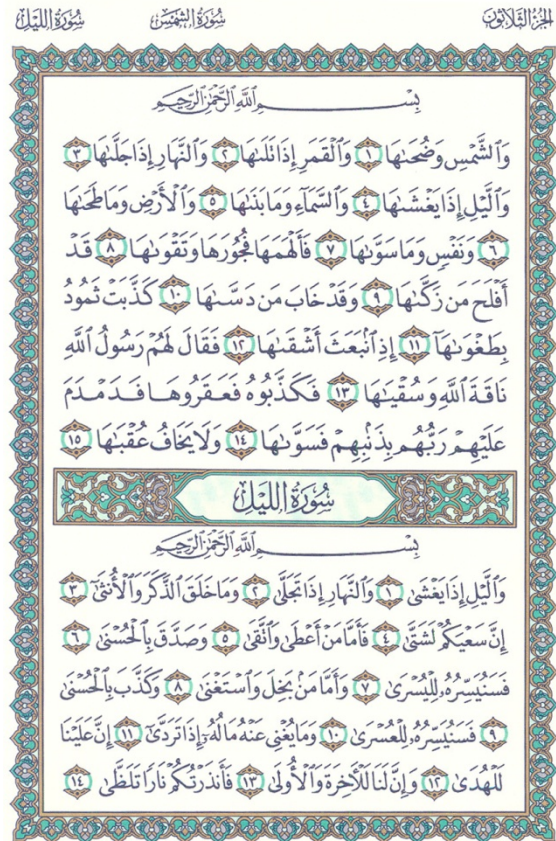 الجزء الثلاثون
سُورَةُ الشَّمْسِ
سُورَةُ اللَّيْلِ
بِسْمِ اللَّهِ الرَّحْمَٰنِ الرَّحِيمِ
وَٱلشَّمْسِ وَضُحَىٰهَا ١ وَٱلْقَمَرِ إِذَا تَلَىٰهَا ٢ وَٱلنَّهَارِ إِذَا جَلَّىٰهَا ٣
وَٱلَّيْلِ إِذَا يَغْشَىٰهَا ٤ وَٱلسَّمَآءِ وَمَا بَنَىٰهَا ٥ وَٱلْأَرْضِ وَمَا طَحَىٰهَا
٦ وَنَفْسٍ وَمَا سَوَّىٰهَا ٧ فَأَلْهَمَهَا فُجُورَهَا وَتَقْوَىٰهَا ٨ قَدْ
أَفْلَحَ مَن زَكَّىٰهَا ٩ وَقَدْ خَابَ مَن دَسَّىٰهَا ١٠ كَذَّبَتْ ثَمُودُ
بِطَغْوَىٰهَآ ١١ إِذِ ٱنۢبَعَثَ أَشْقَىٰهَا ١٢ فَقَالَ لَهُمْ رَسُولُ ٱللَّهِ
نَاقَةَ ٱللَّهِ وَسُقْيَٰهَا ١٣ فَكَذَّبُوهُ فَعَقَرُوهَا فَدَمْدَمَ
عَلَيْهِمْ رَبُّهُم بِذَنۢبِهِمْ فَسَوَّىٰهَا ١٤ وَلَا يَخَافُ عُقْبَٰهَا ١٥
سُورَةُ اللَّيْلِ
بِسْمِ اللَّهِ الرَّحْمَٰنِ الرَّحِيمِ
وَٱلَّيْلِ إِذَا يَغْشَىٰ ١ وَٱلنَّهَارِ إِذَا تَجَلَّىٰ ٢ وَمَا خَلَقَ ٱلذَّكَرَ وَٱلْأُنثَىٰٓ ٣
إِنَّ سَعْيَكُمْ لَشَتَّىٰ ٤ فَأَمَّا مَنْ أَعْطَىٰ وَٱتَّقَىٰ ٥ وَصَدَّقَ بِٱلْحُسْنَىٰ ٦
فَسَنُيَسِّرُهُۥ لِلْيُسْرَىٰ ٧ وَأَمَّا مَنۢ بَخِلَ وَٱسْتَغْنَىٰ ٨ وَكَذَّبَ بِٱلْحُسْنَىٰ
٩ فَسَنُيَسِّرُهُۥ لِلْعُسْرَىٰ ١٠ وَمَا يُغْنِى عَنْهُ مَالُهُۥٓ إِذَا تَرَدَّىٰٓ ١١ إِنَّ عَلَيْنَا
لَلْهُدَىٰ ١٢ وَإِنَّ لَنَا لَلْءَاخِرَةَ وَٱلْأُولَىٰ ١٣ فَأَنذَرْتُكُمْ نَارًا تَلَظَّىٰ ١٤